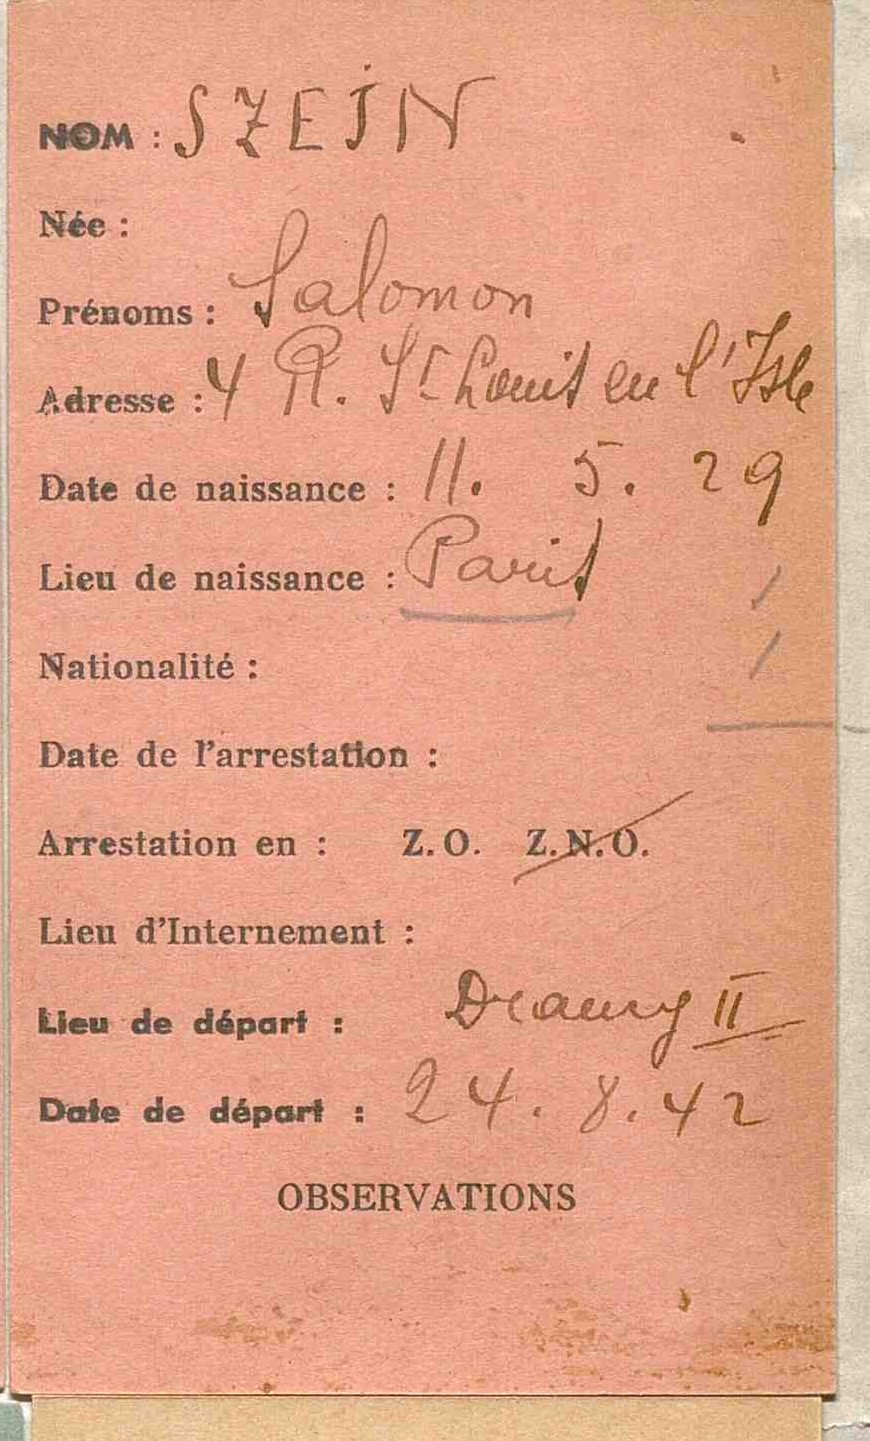 NOM : SZEJN
Née :
Prénoms : Salomon
Adresse : 4 R. St Louis en l'Isle
Date de naissance : 11. 5. 29
Lieu de naissance : Paris
Nationalité :
Date de l'arrestation :
Arrestation en : Z.O. Z.N.O.
Lieu d'Internement :
Lieu de départ : Drancy II
Date de départ : 24. 8. 42
OBSERVATIONS